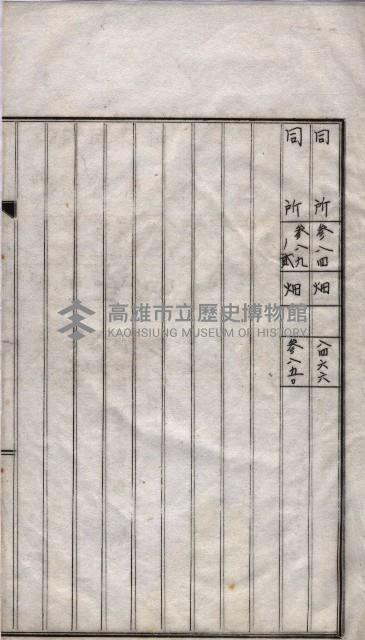 同所 参八四 畑 八四六六
同所 参八九ノ貳 畑 参八五〇
高雄市立歷史博物館
KAOHSIUNG MUSEUM OF HISTORY